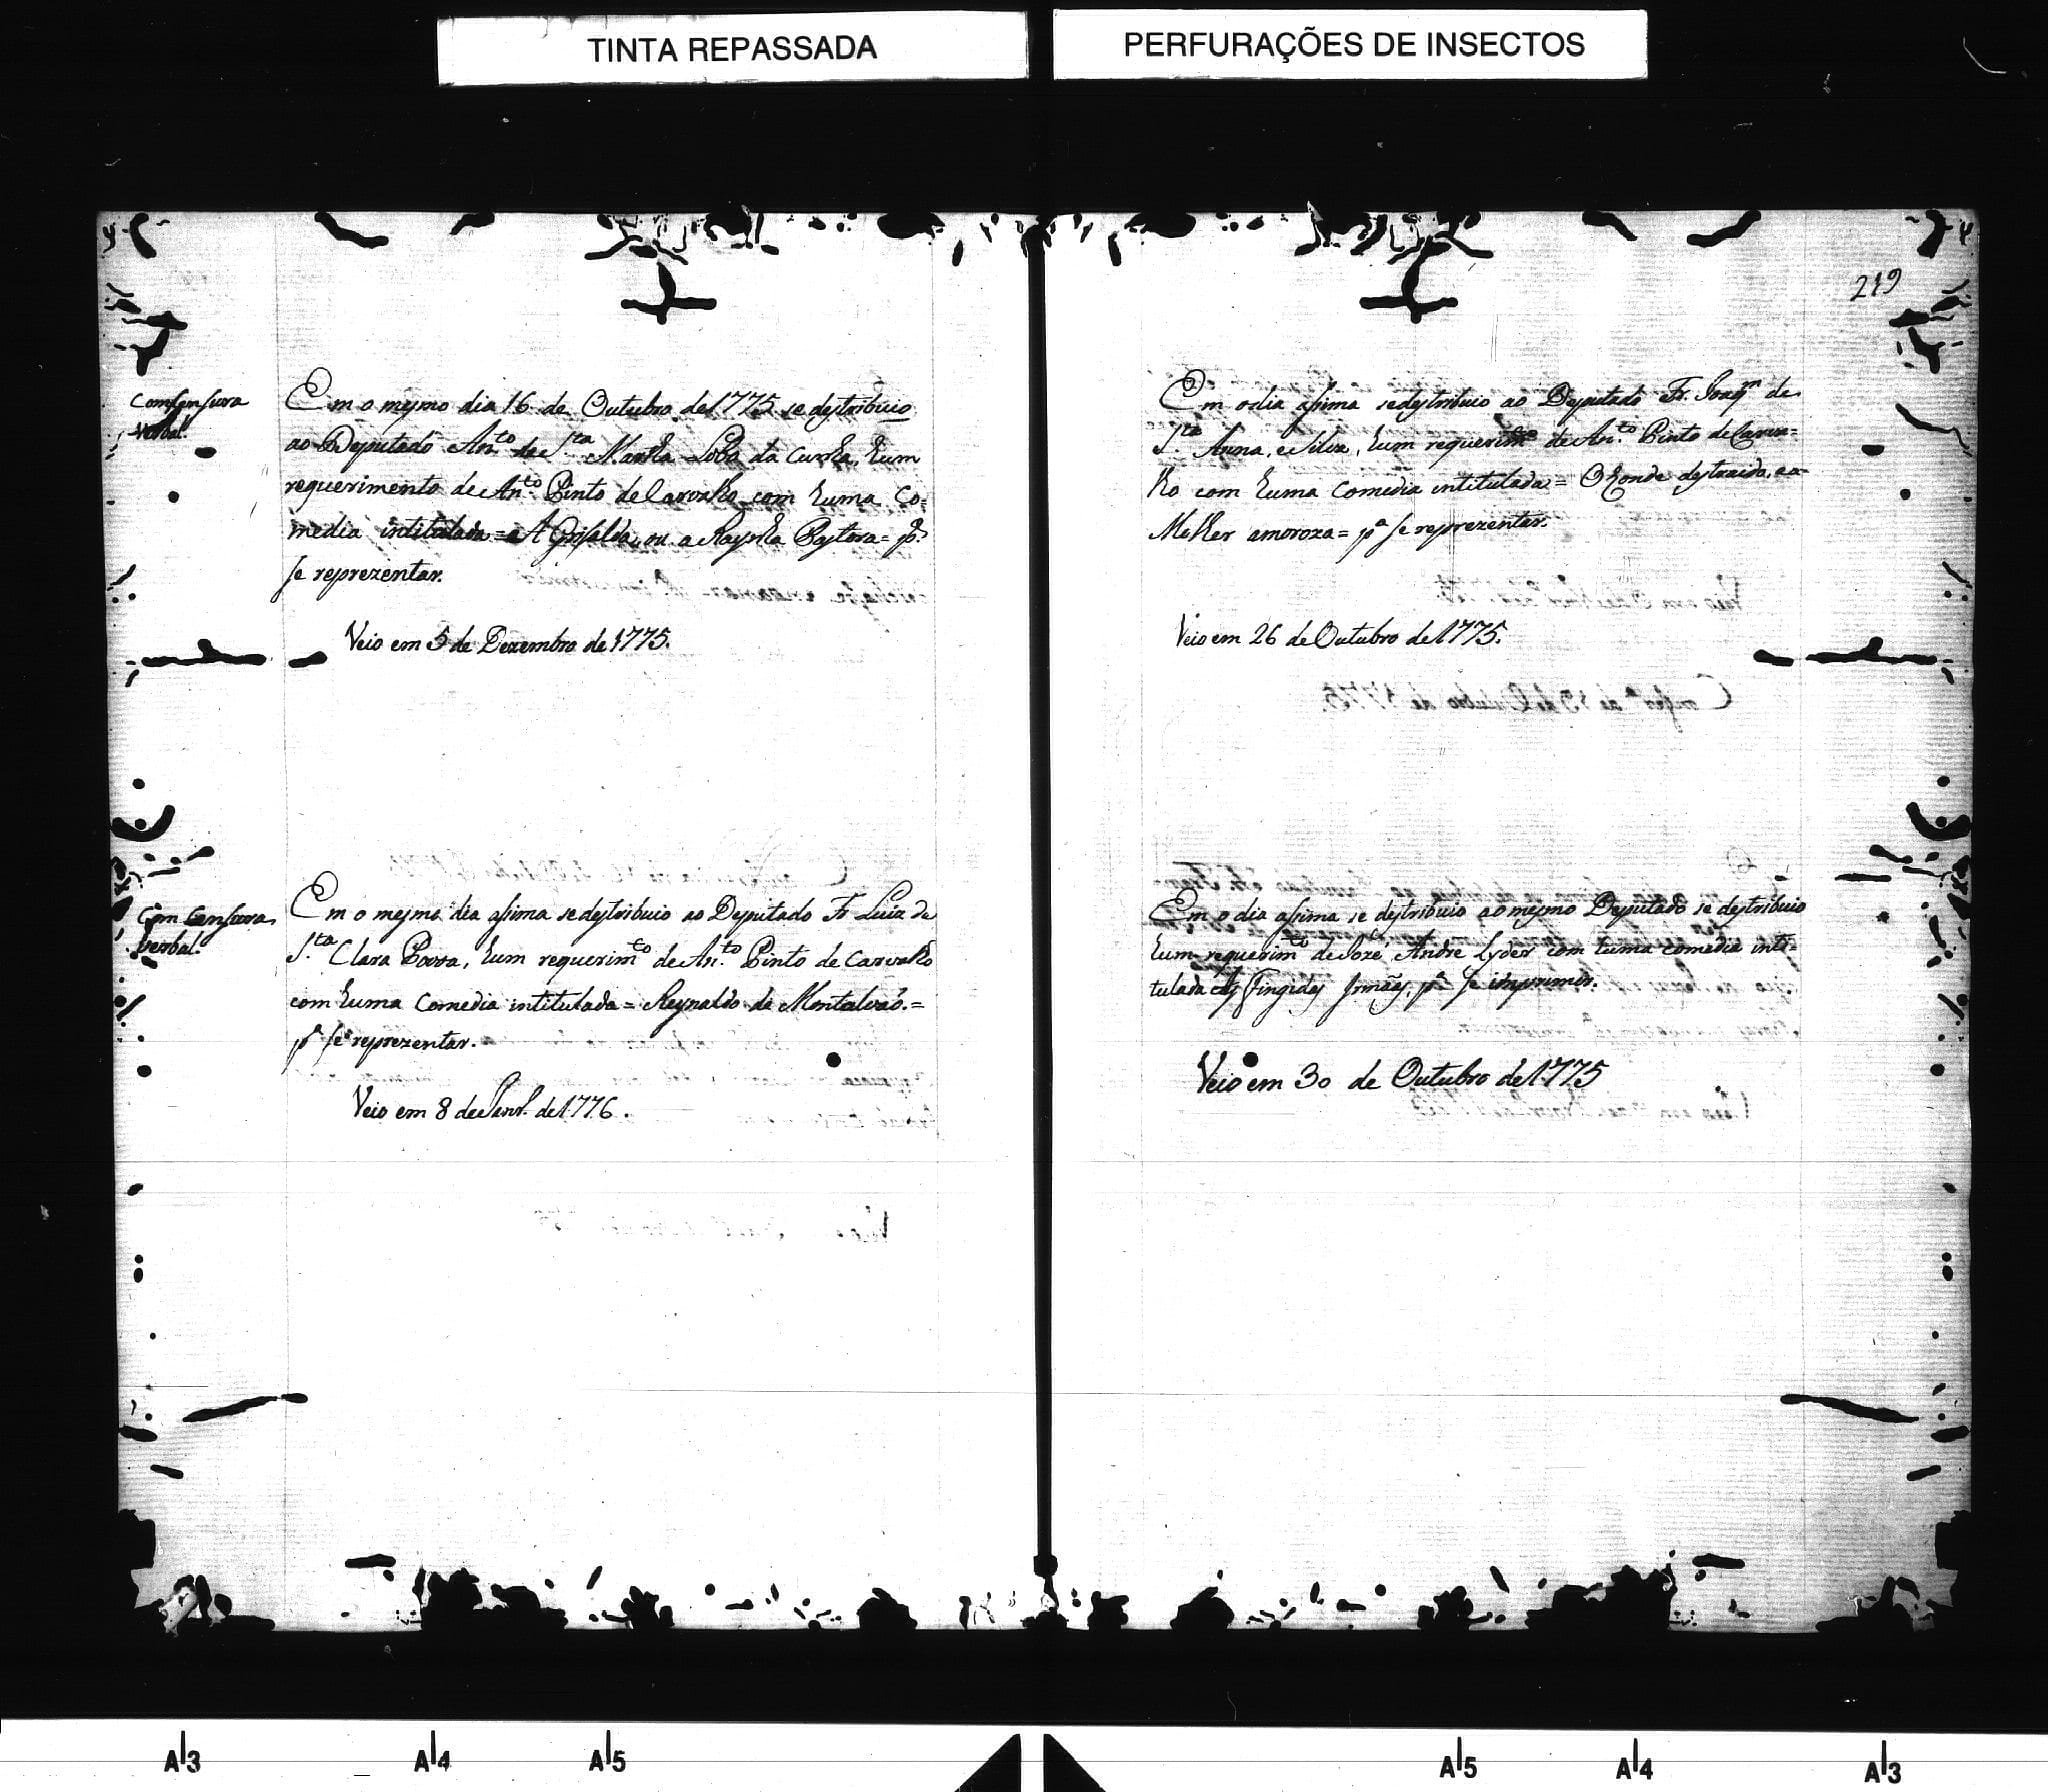 TINTA REPASSADA
PERFURAÇÕES DE INSECTOS
Com Censura
Verbal.
Em o mesmo dia 16 de Outubro de 1775 se destribuio
ao Deputado An.to de S.ta Martha Loba da Cunha, hum
requerimento de An.to Pinto de Carvalho com huma Co=
media intitulada = A Griselda, ou a Raynha Pastora = p.a
se reprezentar.
Veio em 5 de Dezembro de 1775.
Com Censura
Verbal.
Em o mesmo dia assima se destribuio ao Deputado Fr. Luiz de
S.ta Clara Povoa, hum requerim.to de An.to Pinto de Carvalho
com huma Comedia intitulada = Reynaldo de Montalvaõ. =
p.a se reprezentar.
Veio em 8 de Janr.o de 1776.
219
Em o dia assima se destribuio ao Deputado Fr. Joaq.m de
S.ta Anna, e Silva, hum requerim.to de An.to Pinto de Carva=
lho com huma Comedia intitulada = O Conde destraido, e a
Molher amoroza = p.a se reprezentar.
Veio em 26 de Outubro de 1775.
Em o dia assima se destribuio ao mesmo Deputado se destribuio
hum requerim.to de Jozé André Lyder com huma comedia inti=
tulada As Fingidas Irmãs, p.a se imprimir.
Veio em 30 de Outubro de 1775
A3
A4
A5
A5
A4
A3